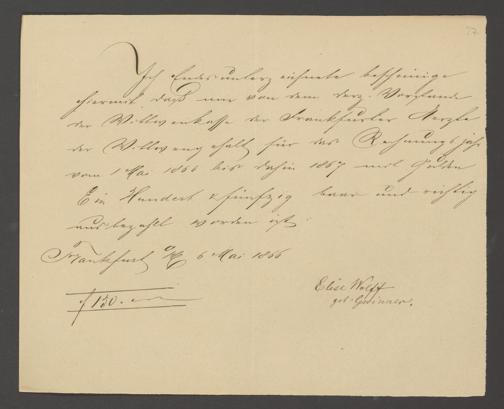 77
Ich Endesunterzeichnete bescheinige
hiermit, daß mir von dem derz. Vorstande
der Wittwenkasse der Frankfurter Aerzte
der Wittwengehalt für das Rechnungsjahr
vom 1 Mai 1866 bis dahin 1867 mit Gulden
Ein Hundert & fünfzig baar und richtig
ausbezahlt worden ist.
Frankfurt a/M 6 Mai 1866
f 150.
Elise Wolff
geb.